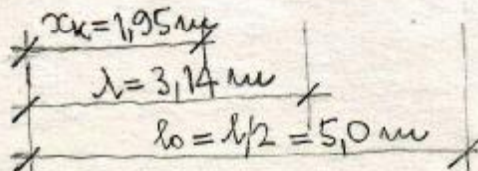 xк=1,95 м
λ=3,14 м
l₀=l/2=5,0 м